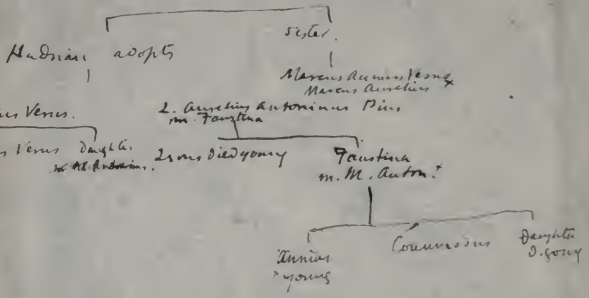 sister.
Hadrian adopts
Marcus Annius Verus x
Marcus Aurelius
us Verus.
2. Aurelius Antoninus Pius
m. Faustina
s Verus Daughter
2 sons died young
Faustina
m. M. Anton. x
Annius
young
Commodus
Daughter
d. young